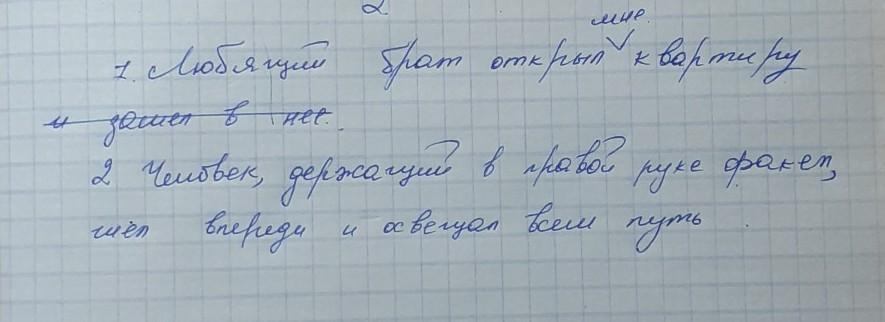 2
1. Любящий брат открыл мне квартиру
и зашел в нее.
2 Человек, держащий в правой руке факел,
шёл впереди и освещал всем путь.